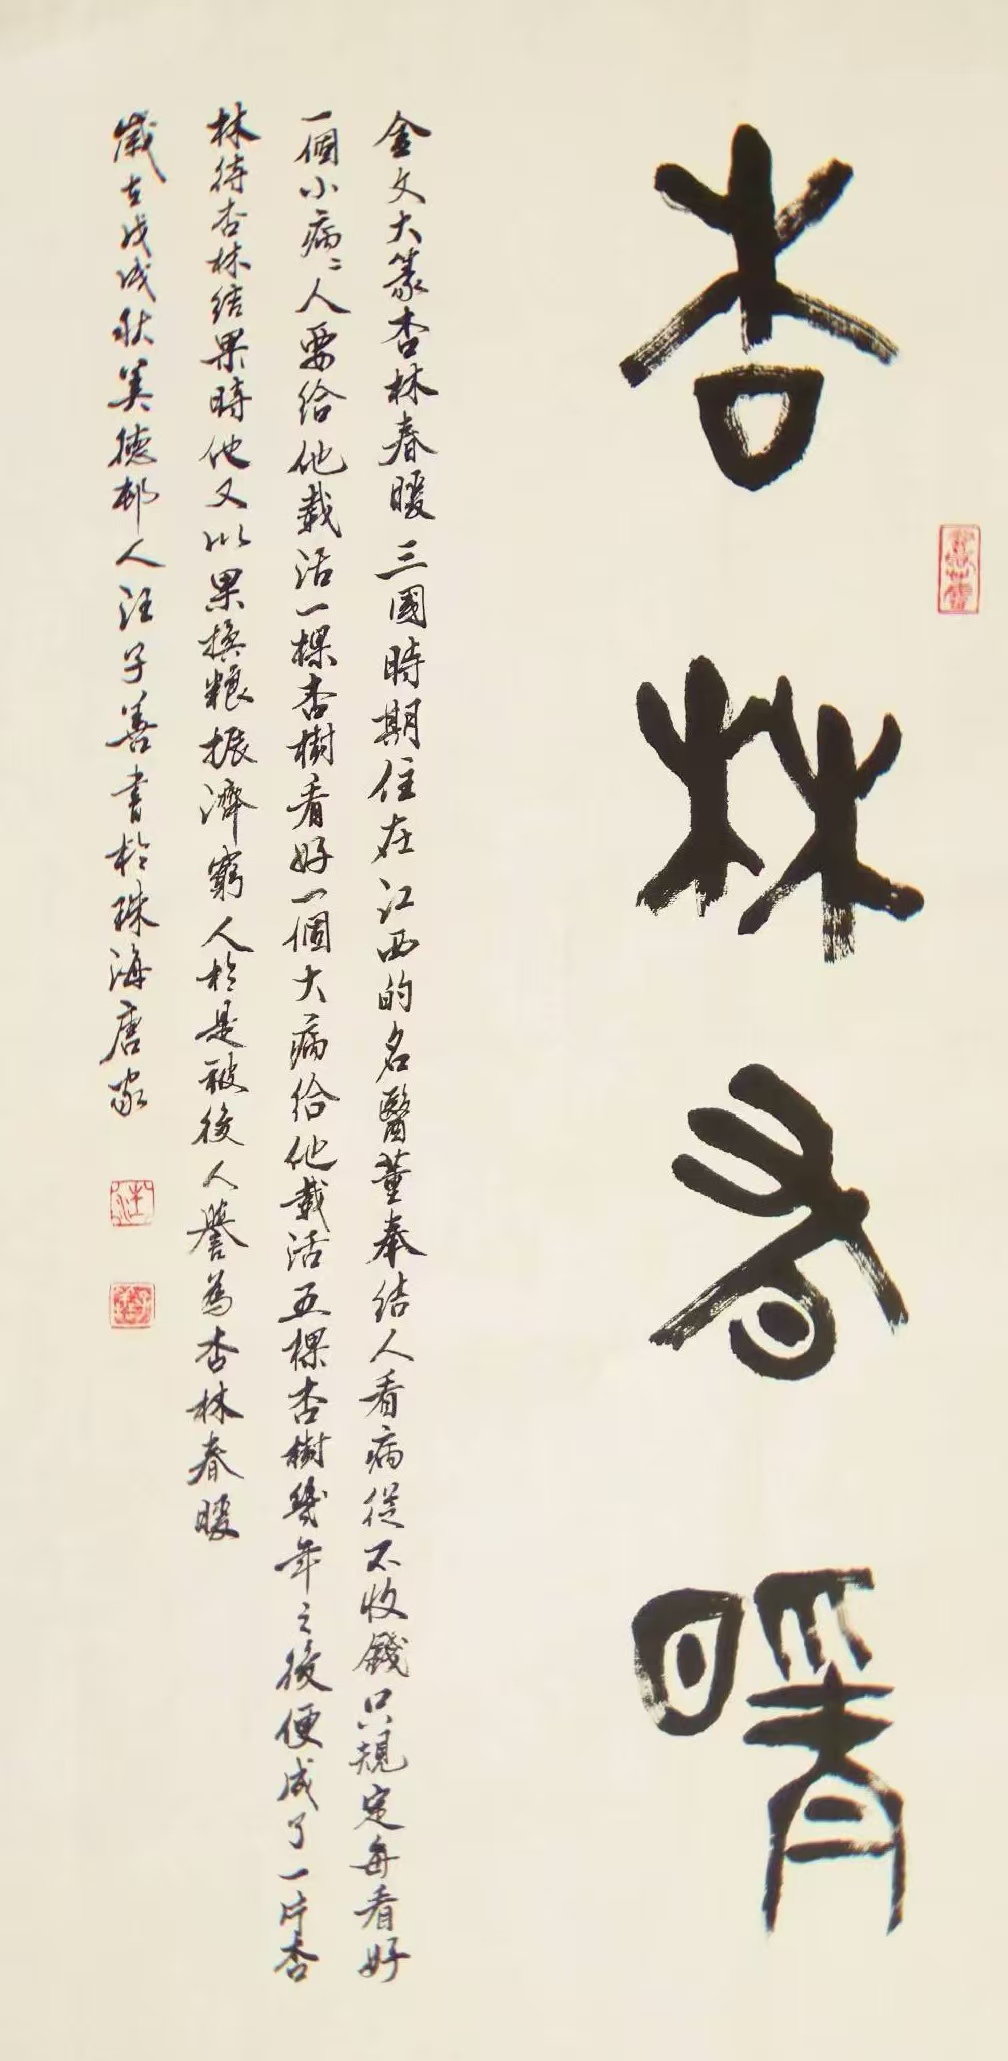 杏林春暖
金文大篆杏林春暖三國時期住在江西的名醫董奉结人看病從不收錢只規定每看好
一個小病〻人要给他栽活一棵杏樹看好一個大病给他栽活五棵杏樹幾年之後便成了一片杏
林待杏林结果時他又以果換粮振濟窮人於是被後人譽為杏林春暖
歲在戊戌秋美德邨人汪子善書於珠海唐家
汪